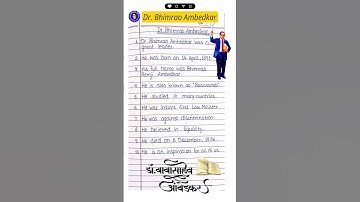 Dr. Bhimrao Ambedkar
Dr. Bhimrao Ambedkar
1. Dr. Bhimrao Ambedkar was a
great leader.
2. He was born on 14 April, 1891.
3. His full name was Bhimrao
Ramji Ambedkar.
4. He is also known as "Babasaheb".
5. He studied in many countries.
6. He was India's first Law Minister.
7. He was against discrimination.
8. He believed in Equality.
9. He died on 6 December, 1956.
10. He is an inspiration for all of us.
डॉ. बाबासाहेब
आंबेडकर